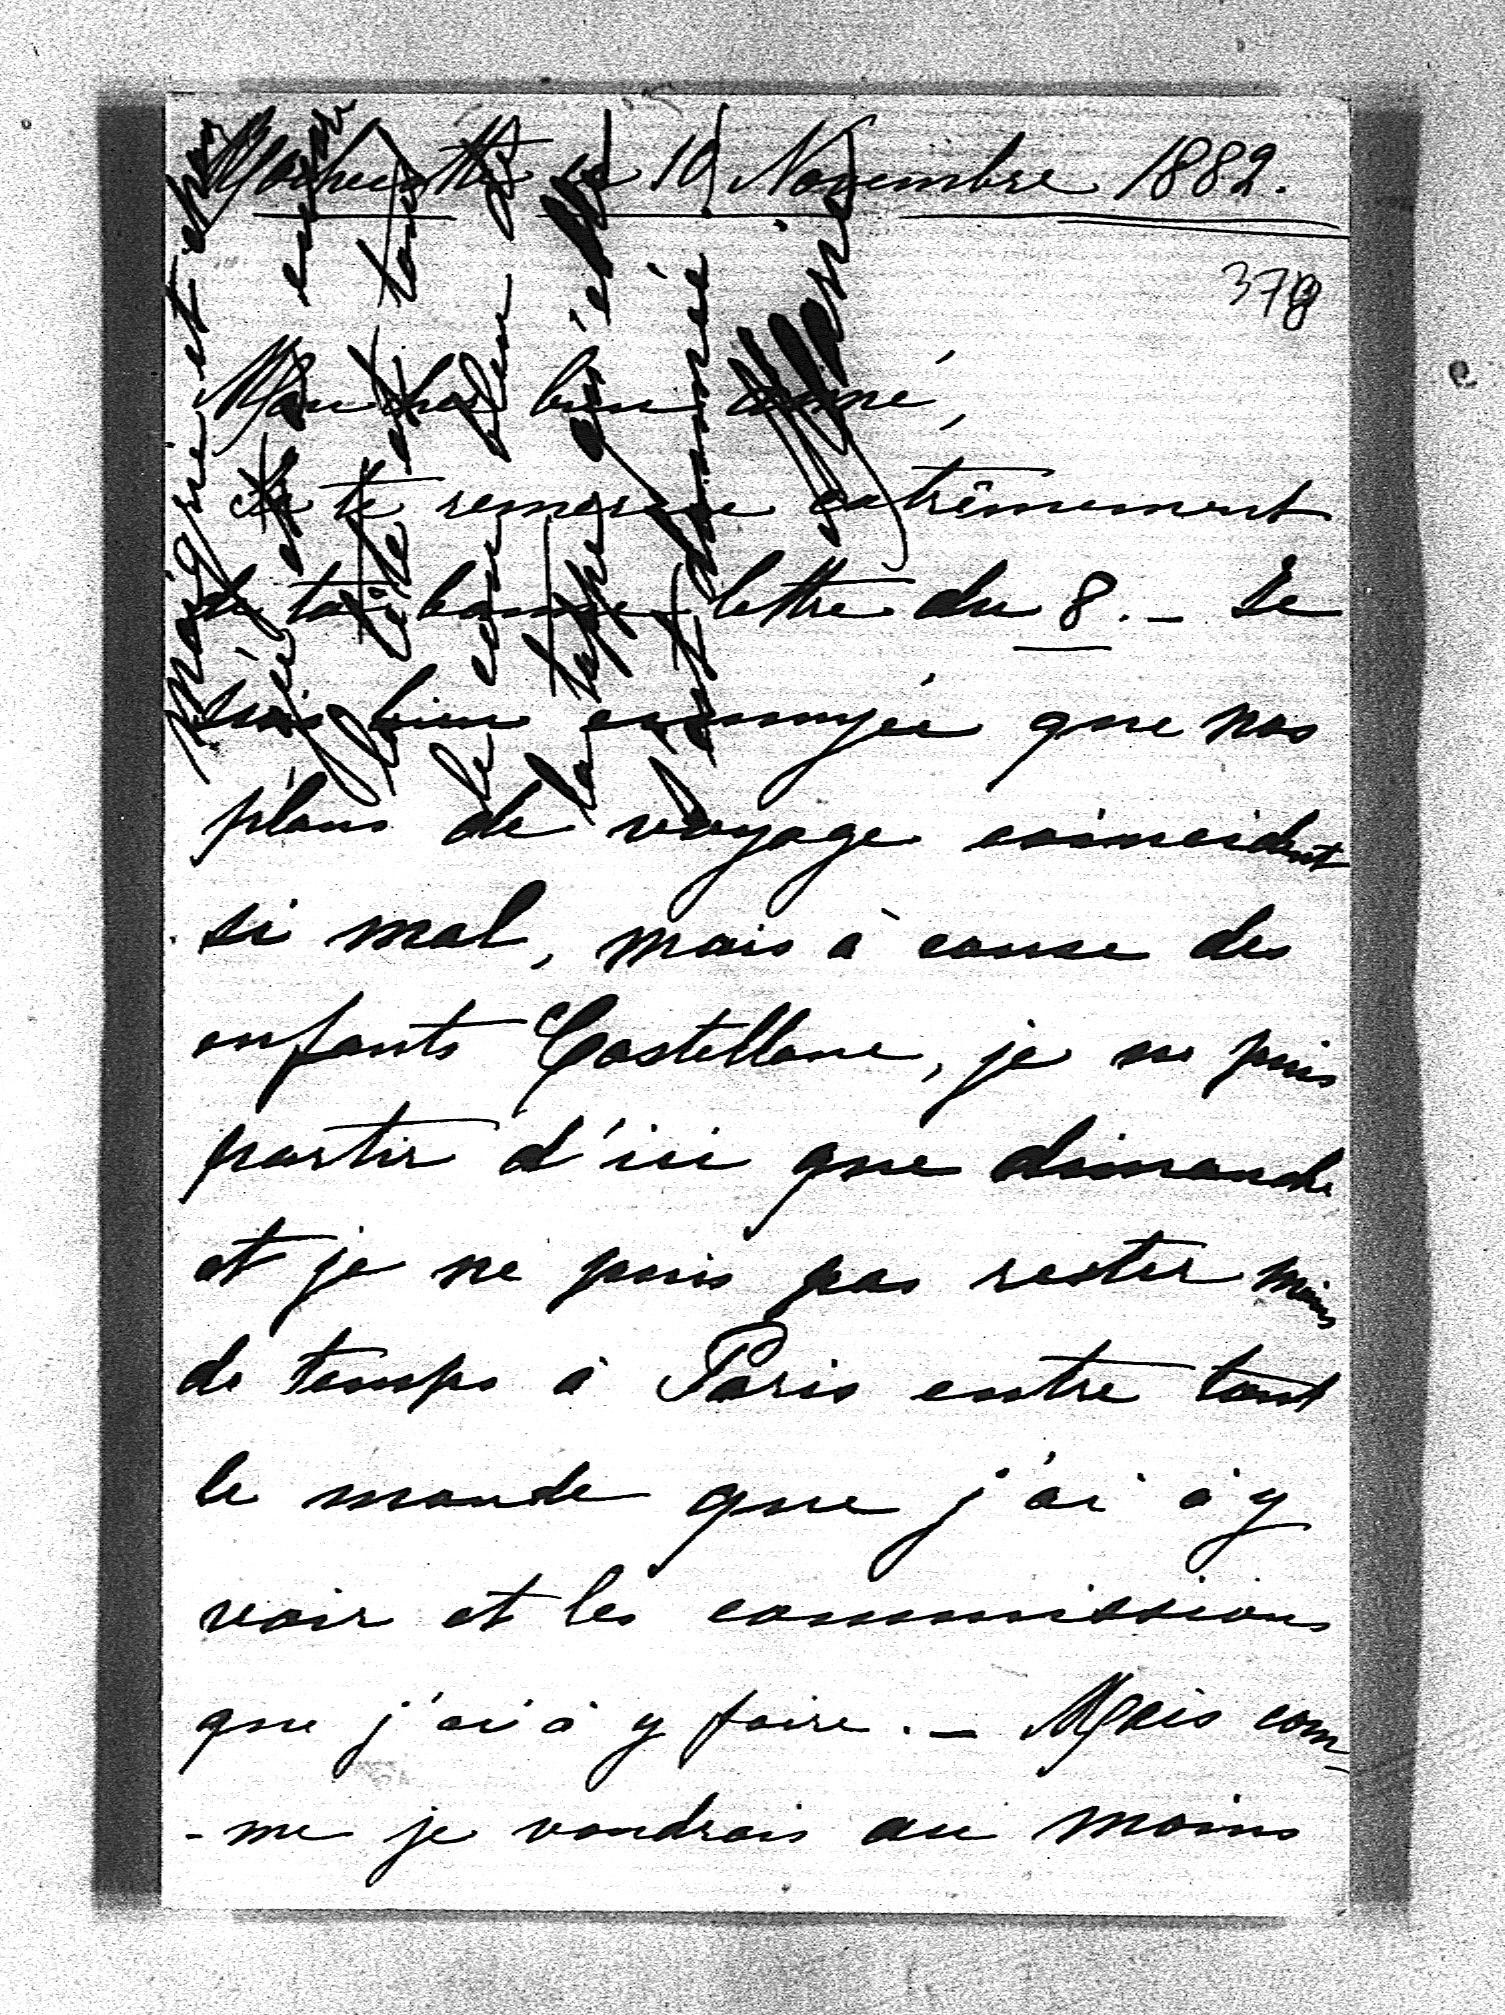 Rochecotte le 10 Novembre 1882.
378
Mon cher bien aimé,
Je te remercie extrêmement
de ta bonne lettre du 8. _ Je
suis bien ennuyée que nos
plans de voyage coincident
si mal, mais à cause des
enfants Castellane, je ne puis
partir d'ici que dimanche
et je ne puis pas rester moins
de temps à Paris entre tout
le monde que j'ai à y
voir et les commissions
que j'ai à y faire. _ Mais com-
-me je voudrais au moins
maigrie et
encore
tant
le cœur
la tappe
Marie